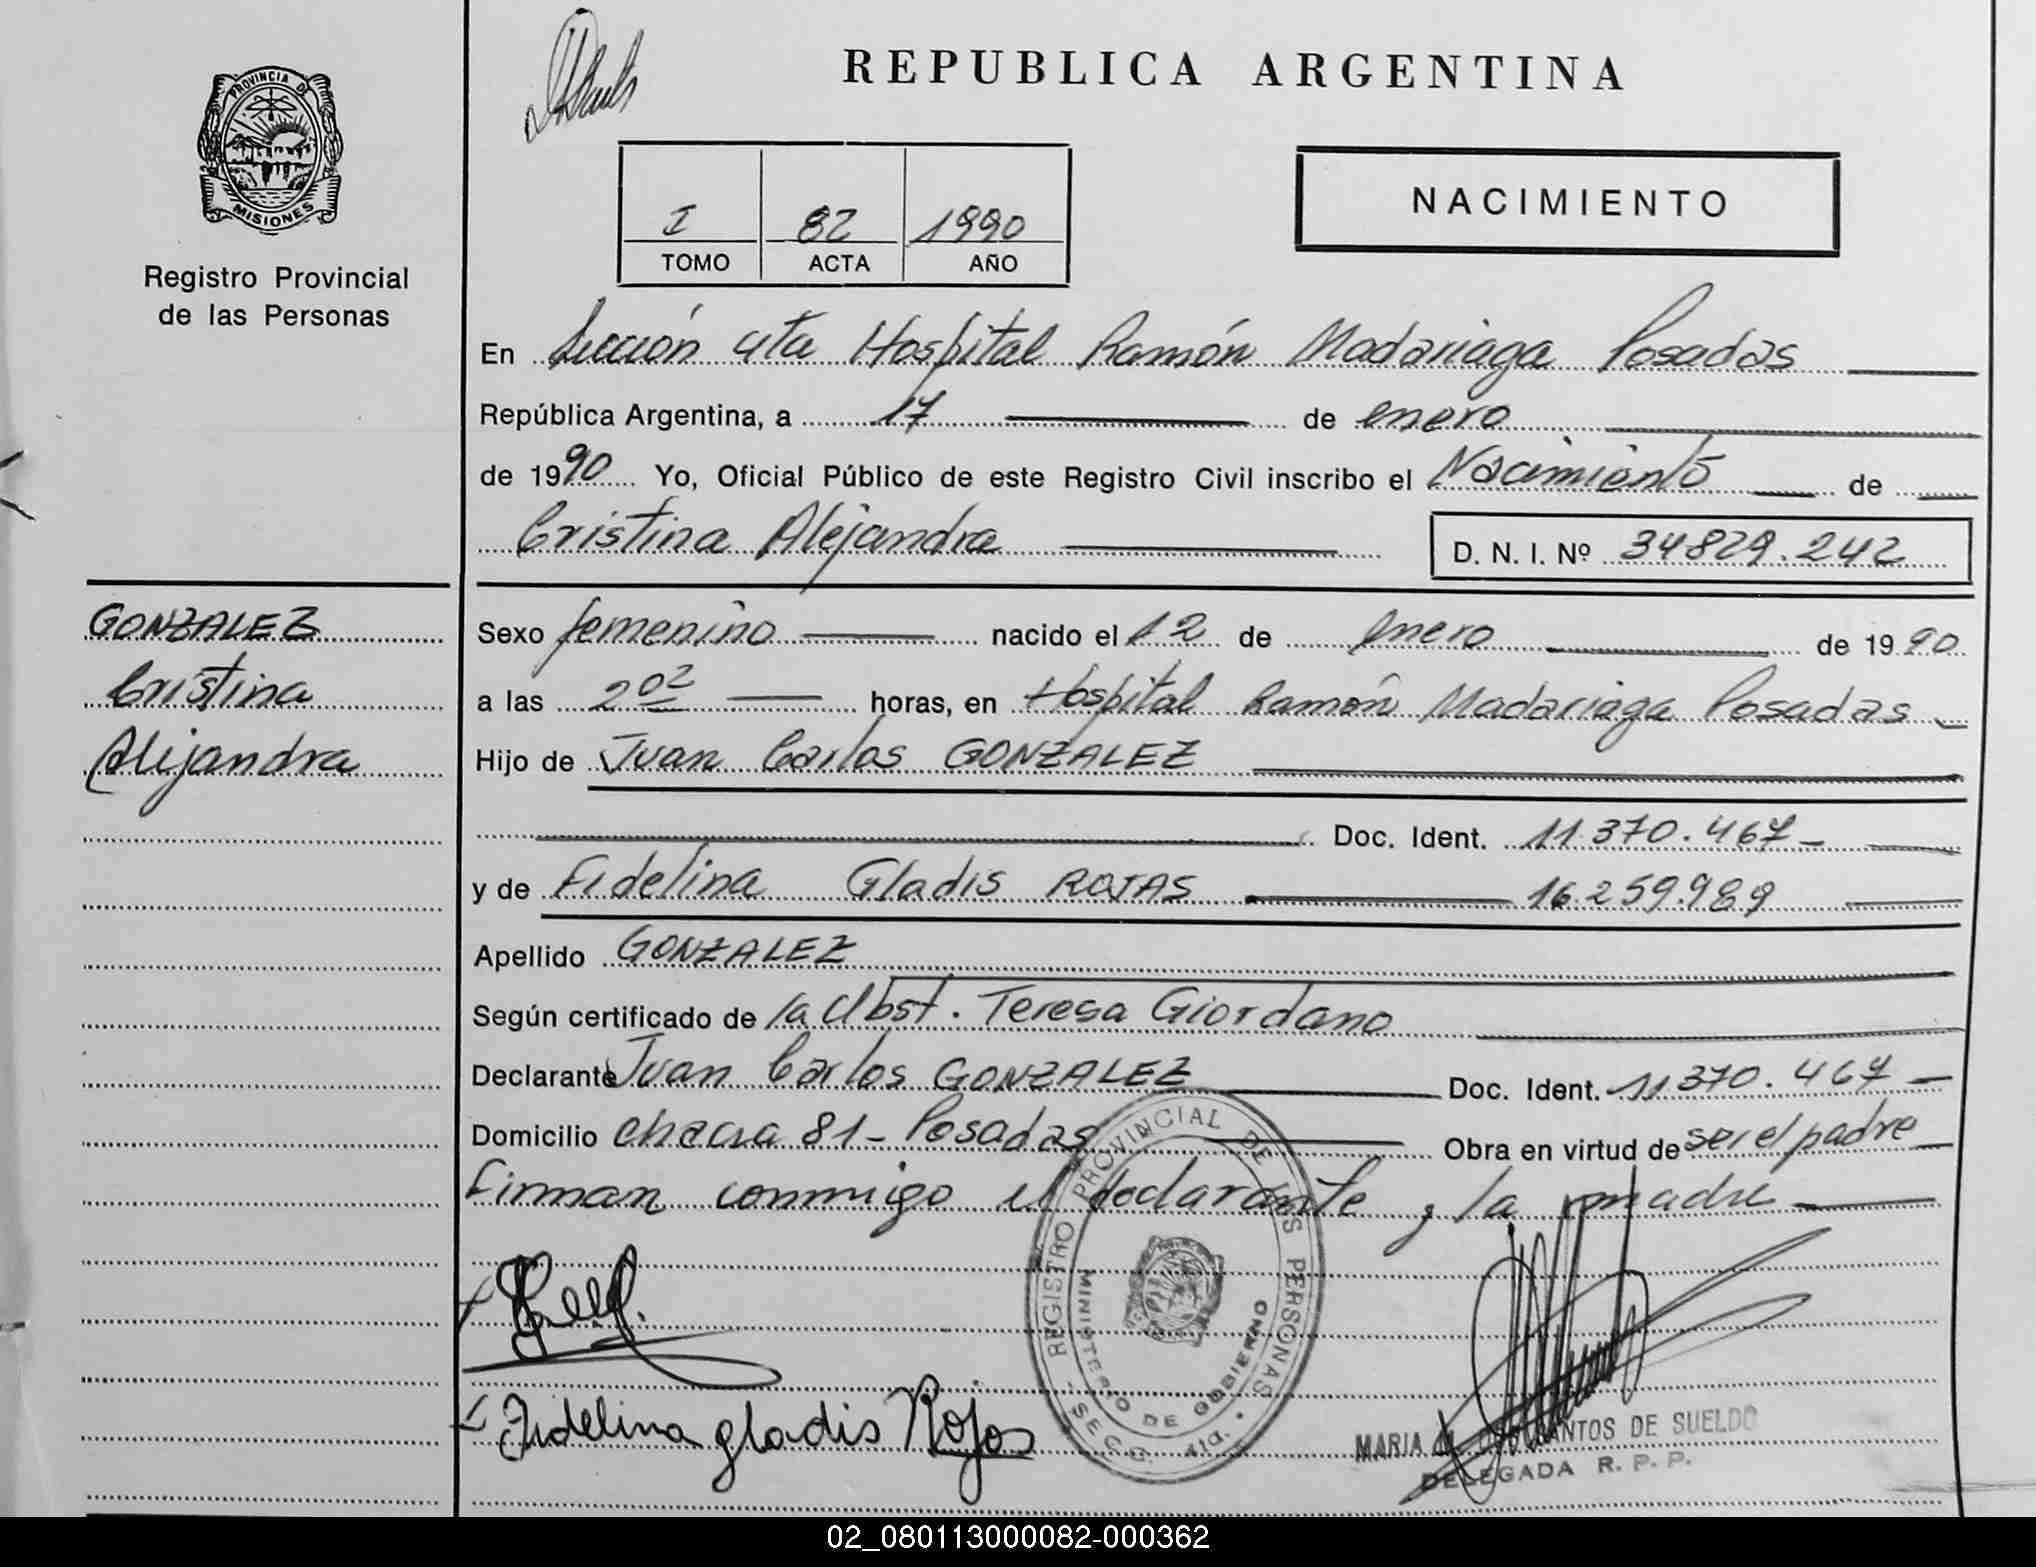 REPUBLICA ARGENTINA
PROVINCIA DE
MISIONES
Registro Provincial
de las Personas
I 82 1990
TOMO ACTA AÑO
NACIMIENTO
En Sección 4ta Hospital Ramón Madariaga Posadas
República Argentina, a 17 de enero
de 1990 Yo, Oficial Público de este Registro Civil inscribo el Nacimiento de
Cristina Alejandra D. N. I. Nº 34829.242
GONZALEZ
Cristina
Alejandra
Sexo femenino nacido el 12 de enero de 1990
a las 2 02 horas, en Hospital Ramón Madariaga Posadas
Hijo de Juan Carlos GONZALEZ
Doc. Ident. 11.370.467
y de Fidelina Gladis ROJAS 16.259.989
Apellido GONZALEZ
Según certificado de la Obst. Teresa Giordano
Declarante Juan Carlos GONZALEZ Doc. Ident. 11370.467
Domicilio chacra 81 - Posadas Obra en virtud de ser el padre
Firman conmigo el declarante y la madre
REGISTRO PROVINCIAL DE LAS PERSONAS
MINISTERIO DE GOBIERNO
Fidelina gladis Rojas
MARIA SANTOS DE SUELDO
DELEGADA R. P. P.
02_080113000082-000362